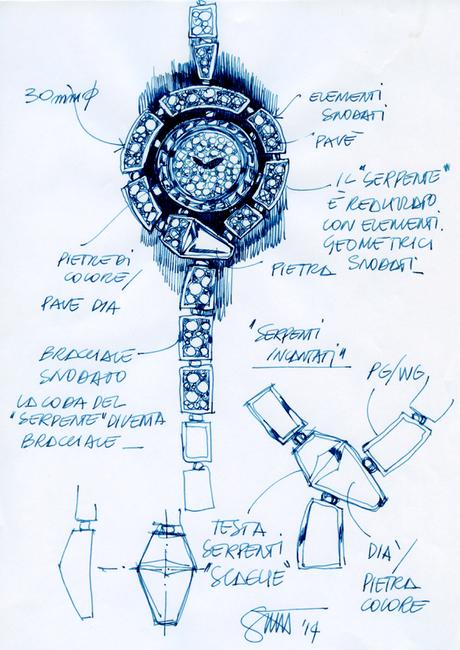 30mm ⌀
ELEMENTI
SNODATI
PAVÈ
IL "SERPENTE"
È REALIZZATO
CON ELEMENTI
GEOMETRICI
SNODATI
PIETRE DI
COLORE/
PAVE DIA
PIETRA
BRACCIALE
SNODATO
LA CODA DEL
"SERPENTE" DIVENTA
BRACCIALE
"SERPENTI
INCANTATI"
PG/WG
TESTA
SERPENTI
"SCAGLIE"
DIA/
PIETRA
COLORE
'14